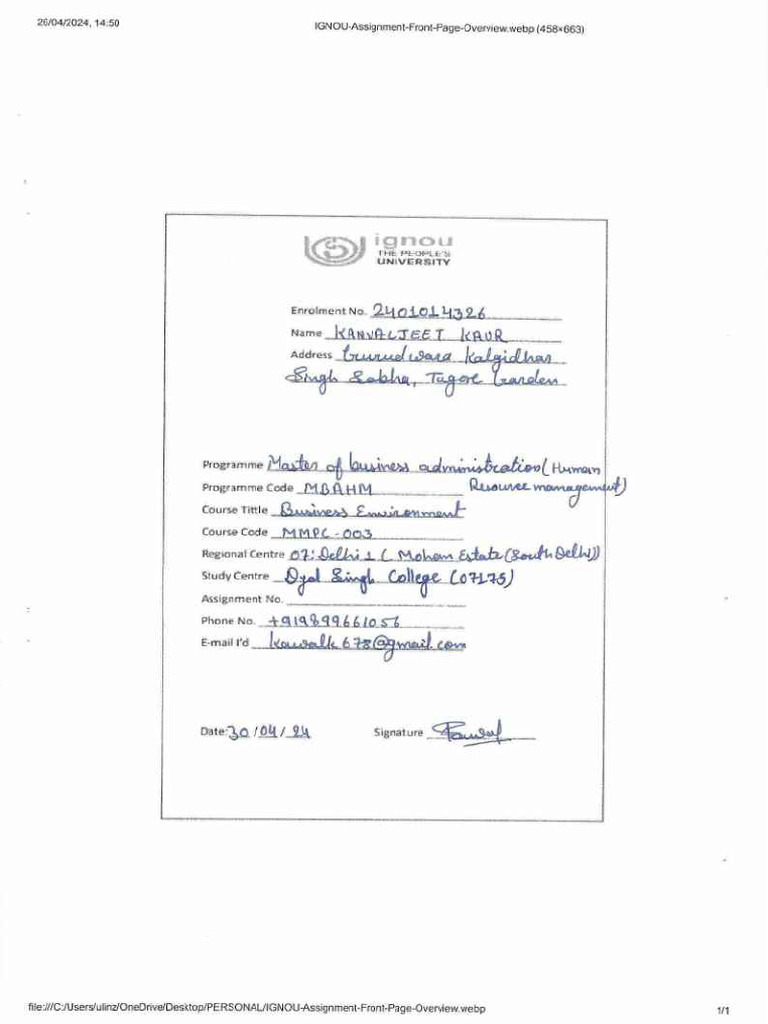 26/04/2024, 14:50 IGNOU-Assignment-Front-Page-Overview.webp (458×663)
ignou
THE PEOPLE'S
UNIVERSITY
Enrolment No. 2401014326
Name KANVALJEET KAUR
Address Gurudwara Kalgidhar
Singh Sabha, Tagore Garden
Programme Master of business administration (Human
Programme Code MBAHM Resource management)
Course Tittle Business Environment
Course Code MMPC-003
Regional Centre 07: Delhi 1 ( Mohan Estate (South Delhi))
Study Centre Dyal Singh College (07175)
Assignment No.
Phone No. +919899661056
E-mail I'd kawalk678@gmail.com
Date: 30 / 04 / 24 Signature
file:///C:/Users/ulinz/OneDrive/Desktop/PERSONAL/IGNOU-Assignment-Front-Page-Overview.webp 1/1